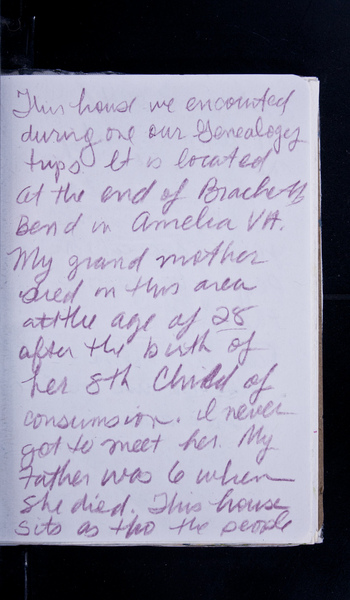 This house we encounted
during one our Genealogy
trips It is located
at the end of Bracketts
Bend in Amelia VA.
My grand mother
died in this area
at the age of 28
after the birth of
her 8th Child of
consumsion. I never
got to meet her. My
Father was 6 when
She died. This house
sits as tho the people